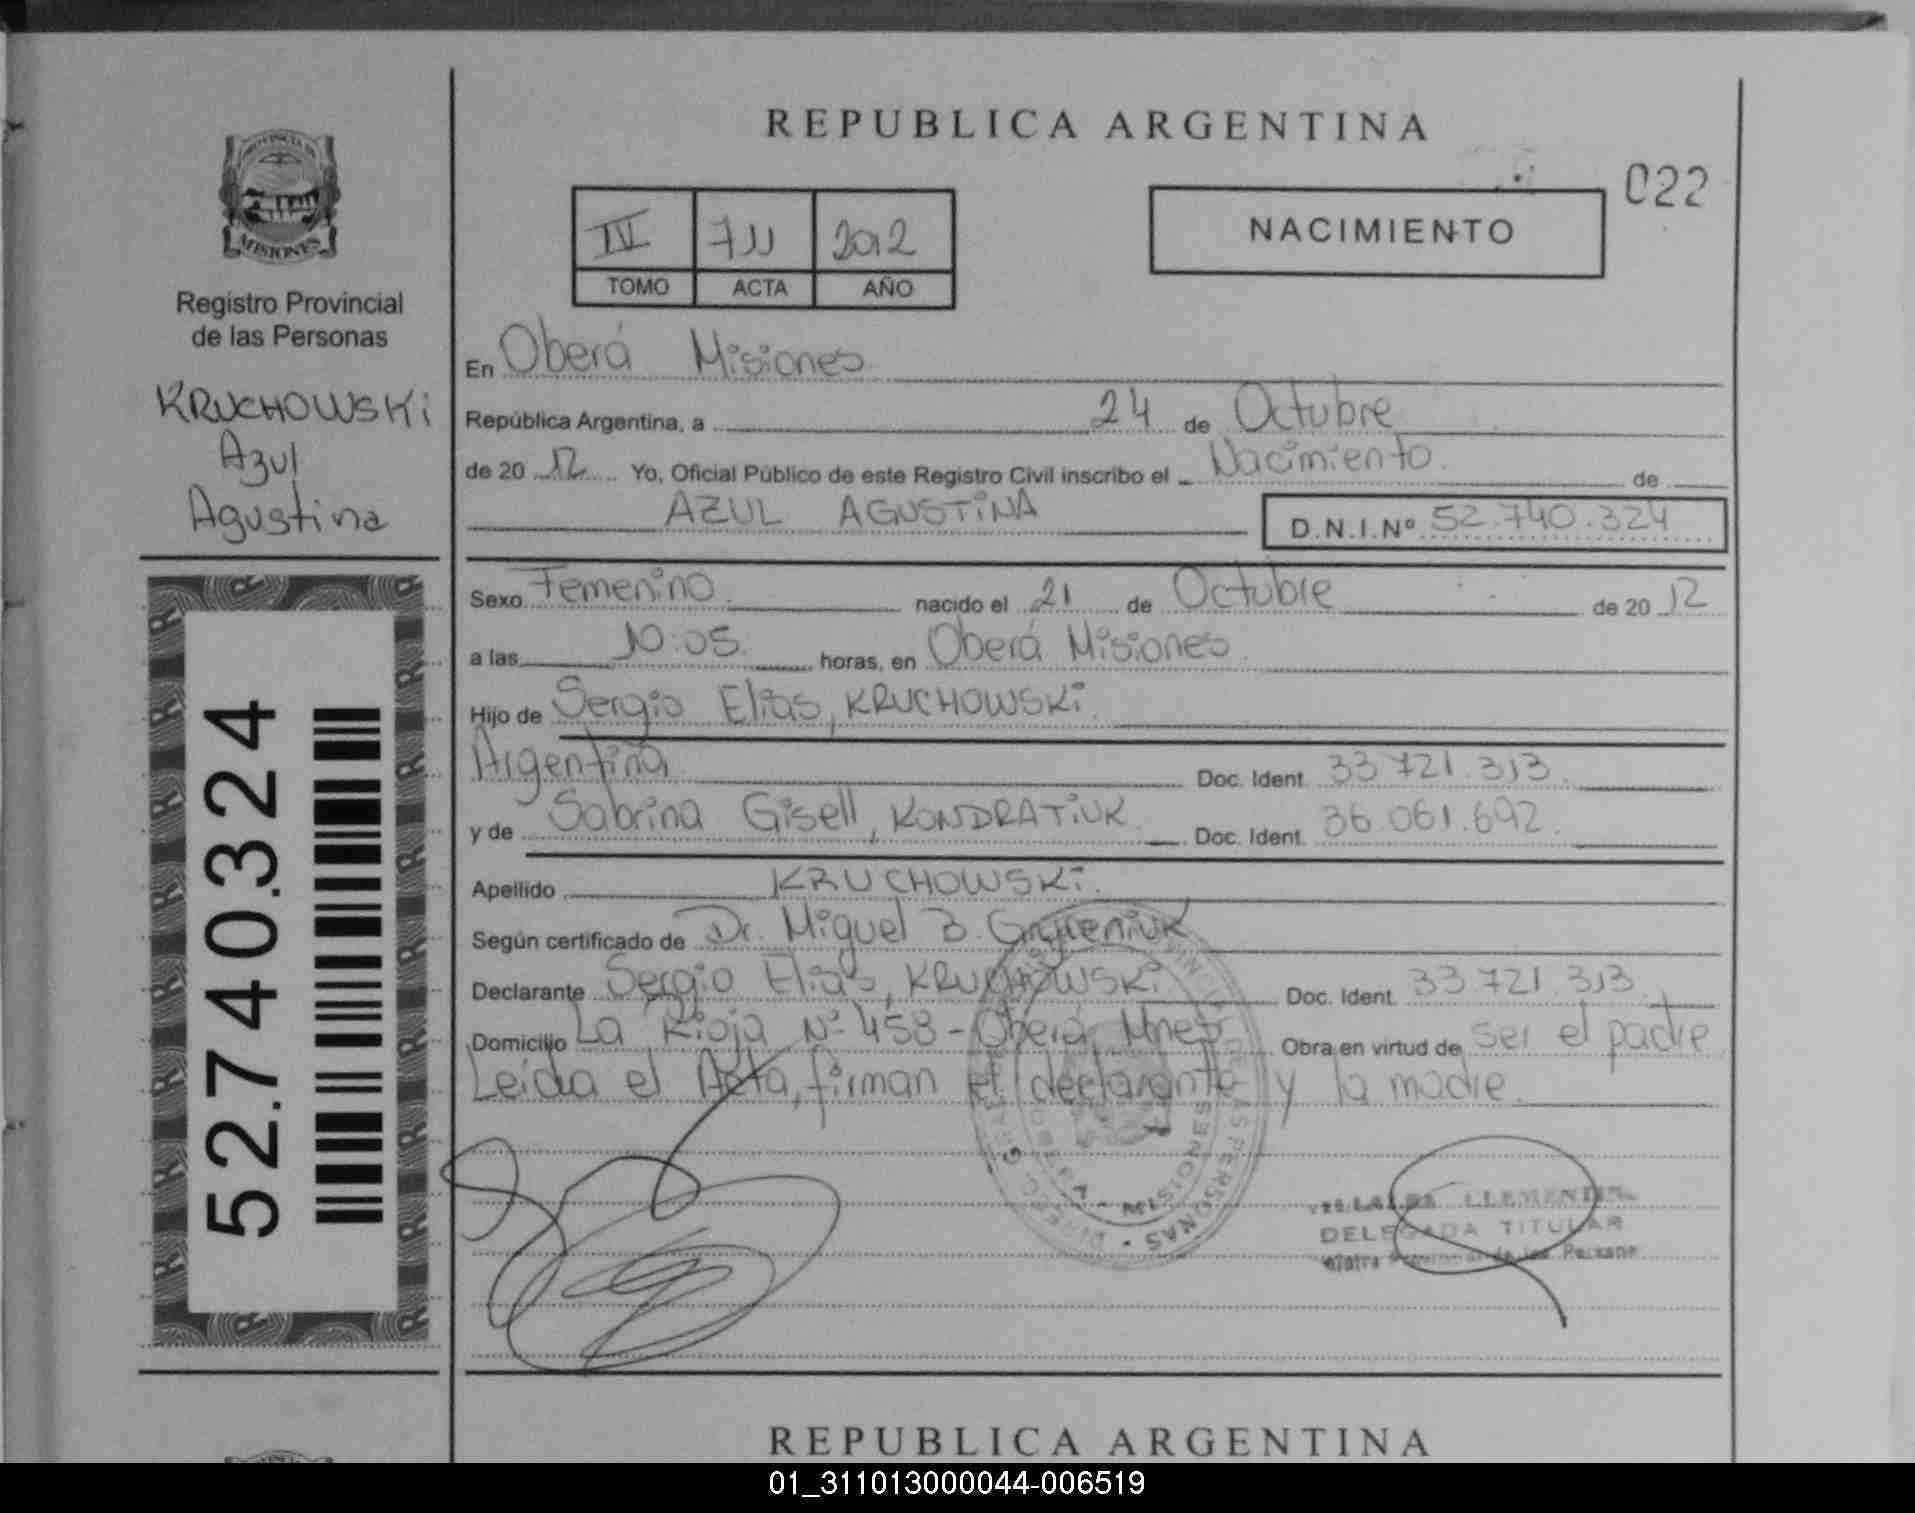 PROVINCIA DE
MISIONES
Registro Provincial
de las Personas
KRUCHOWSKi
Azul
Agustina
52.740.324
REPUBLICA ARGENTINA
022
IV 711 2012
TOMO ACTA AÑO
NACIMIENTO
En Oberá Misiones
República Argentina, a 24 de Octubre
de 20 12 Yo, Oficial Público de este Registro Civil inscribo el Nacimiento. de
AZUL AGUSTiNA D.N.I.Nº 52.740.324
Sexo Femenino. nacido el 21 de Octubre de 20 12
a las 10:05. horas, en Oberá Misiones.
Hijo de Sergio Elias, KRUCHOWSKi.
Argentina Doc. Ident. 33.721.313.
y de Sabrina Gisell, KONDRATiUK. Doc. Ident. 36.061.692.
Apellido KRUCHOWSKi.
Según certificado de Dr. Miguel B.
Declarante Sergio Elias, KRUCHOWSKi Doc. Ident. 33.721.313
Domicilio La Rioja Nº 458 - Oberá Mnes Obra en virtud de ser el padre
Leida el Acta, firman el declarante y la madre.
DE LAS PERSONAS - DIRECC. GRAL.
MISIONES
CLEMENTINA
DELEGADA TITULAR
Provincial de las Persona
REPUBLICA ARGENTINA
01_311013000044-006519